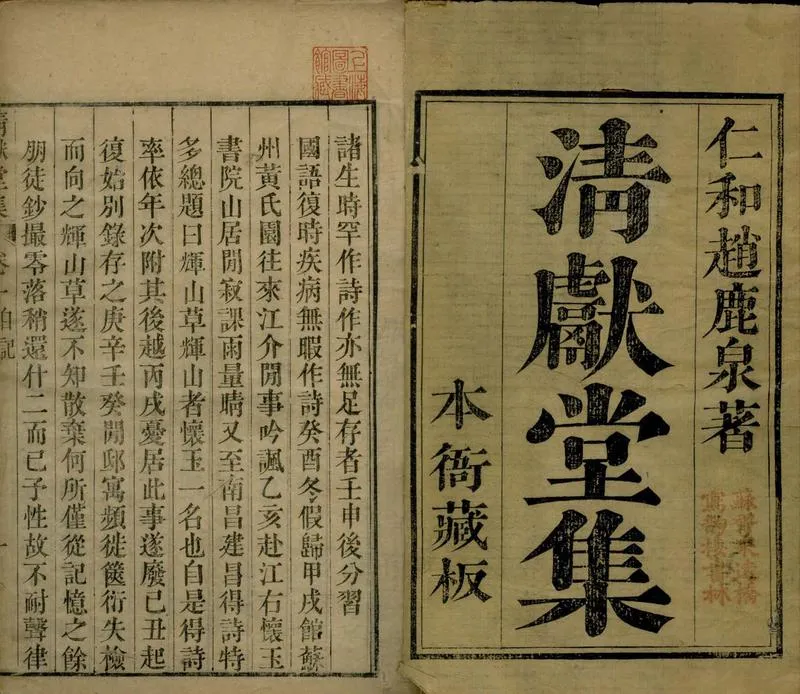 仁和趙鹿泉著
清獻堂集
本衙藏板
諸生時罕作詩作亦無足存者壬申後分習
國語復時疾病無暇作詩癸酉冬假歸甲戌館蘇
州黃氏園往來江介閒事吟諷乙亥赴江右懷玉
書院山居閒寂課雨量晴又至南昌建昌得詩特
多總題曰輝山草輝山者懷玉一名也自是得詩
率依年次附其後越丙戌憂居此事遂廢己丑起
復始別錄存之庚辛壬癸閒邸寓頻徙篋衍失檢
而向之輝山草遂不知散棄何所僅從記憶之餘
朋徒鈔撮零落稍還什二而已予性故不耐聲律
清獻堂集 卷一自記 一